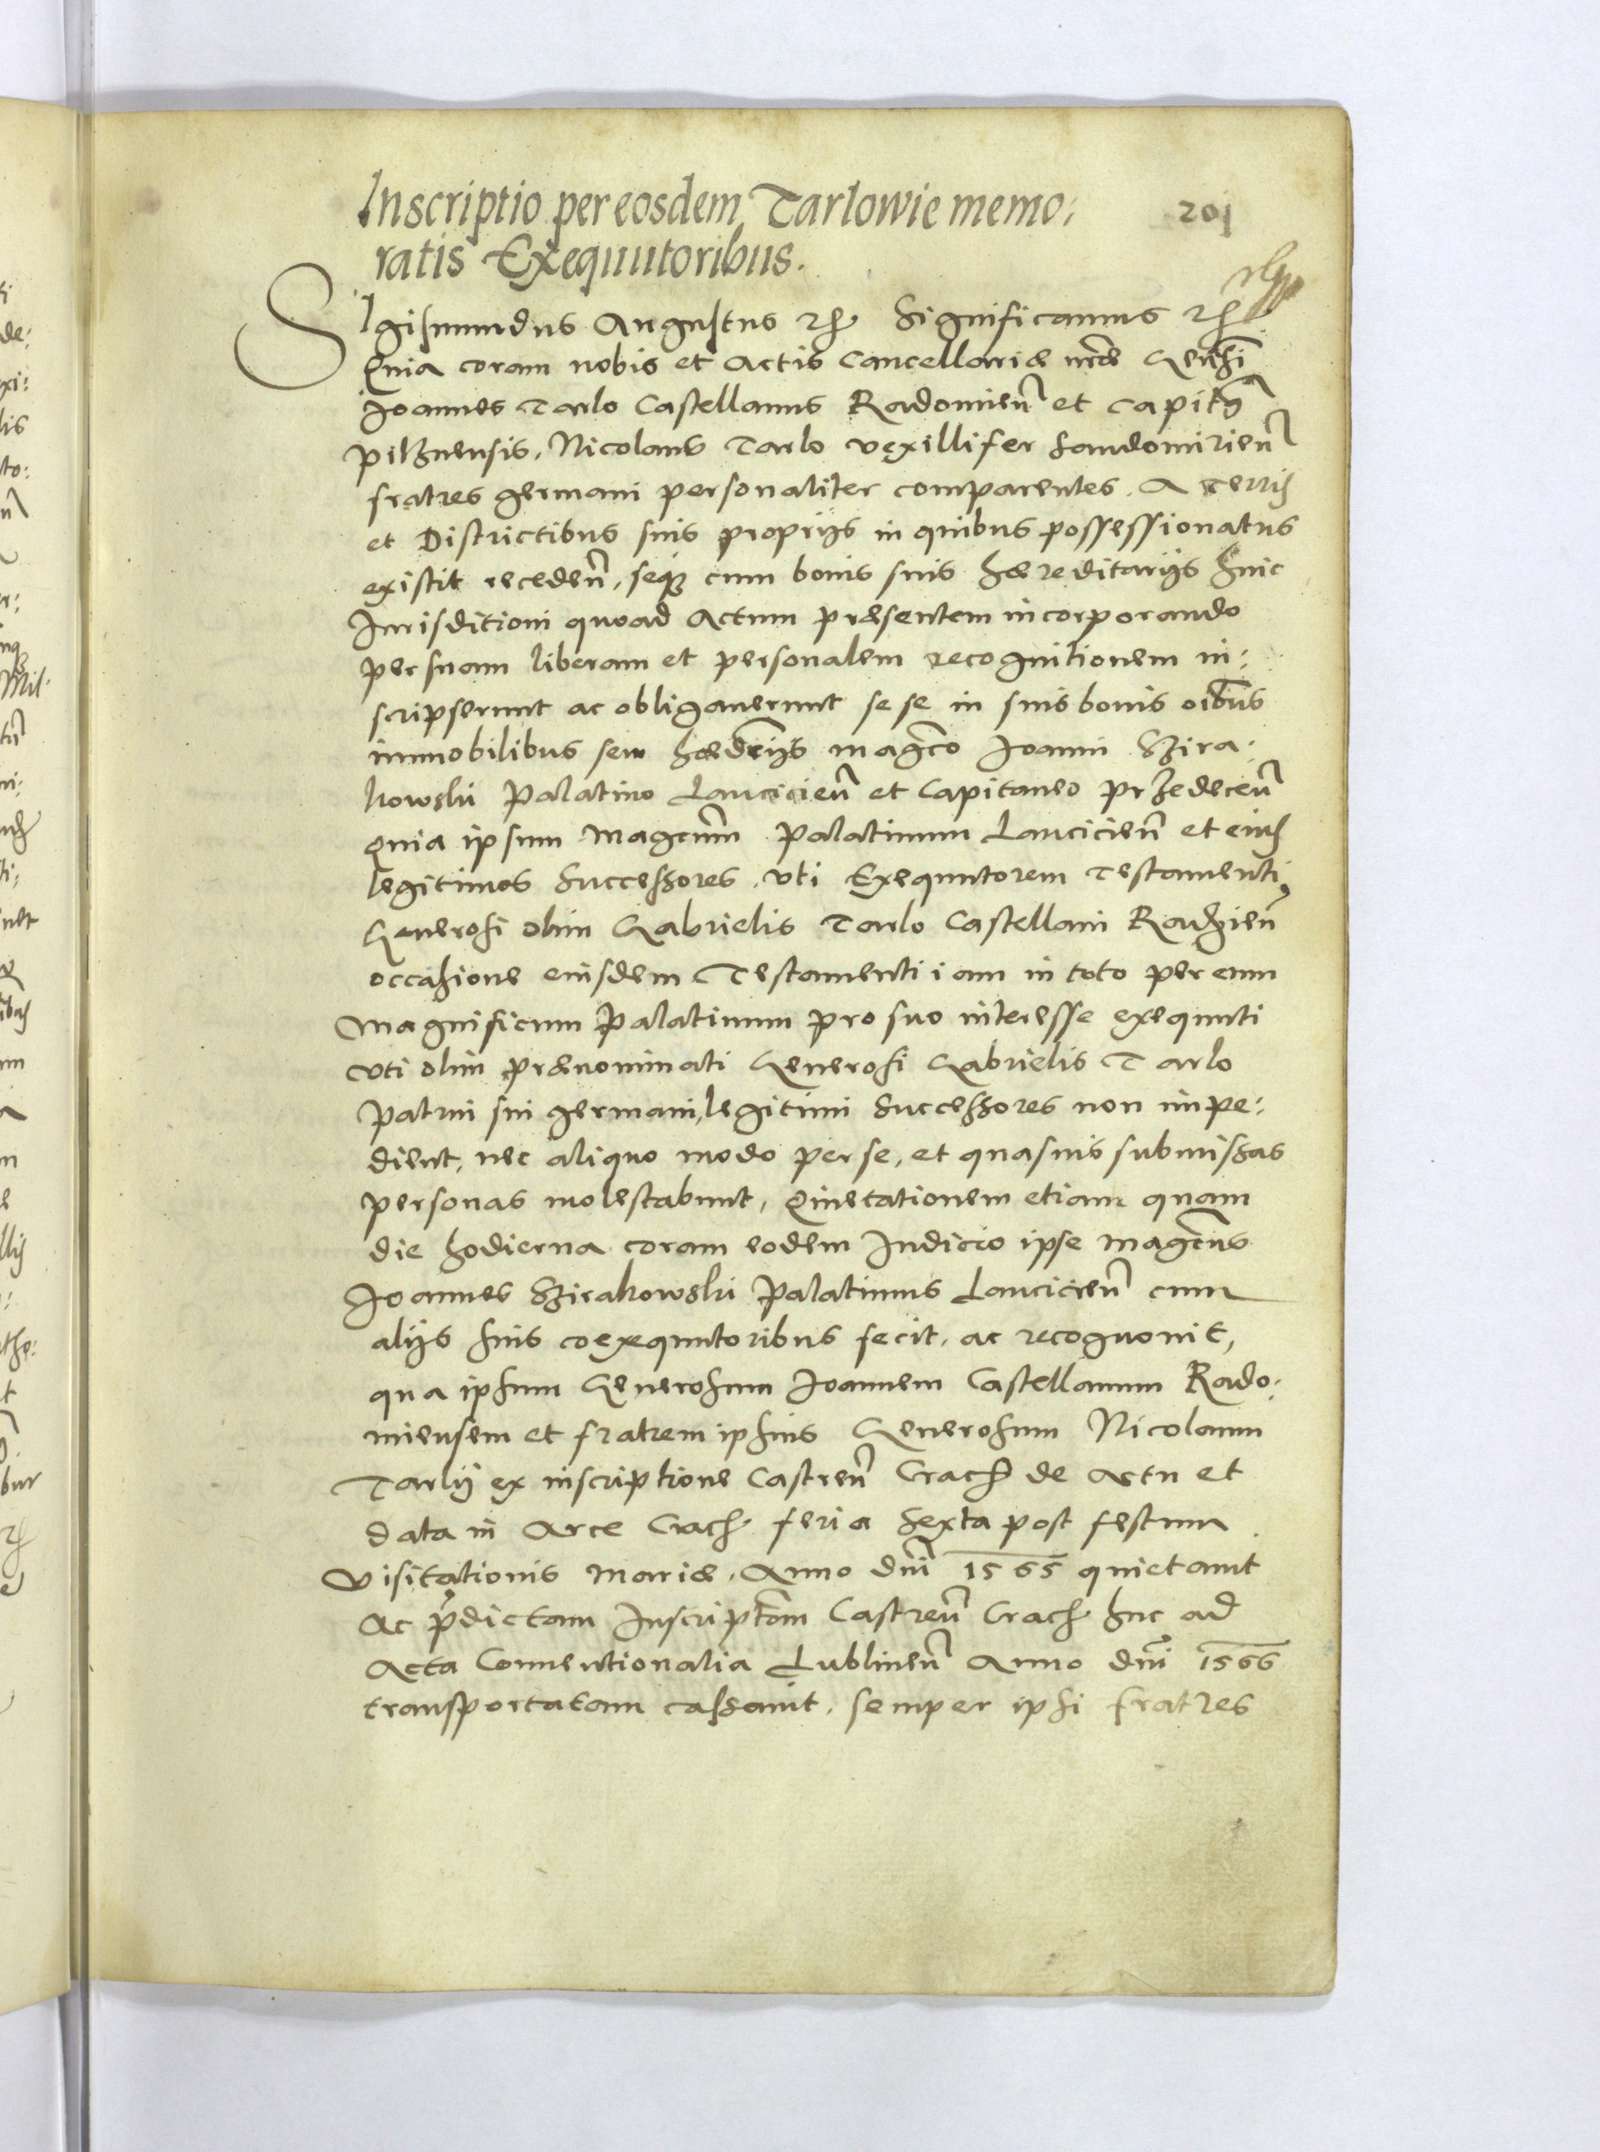 Inscriptio per eosdem Tarlowie memo:
201
ratis Exequutoribus.
Sigismundus Augustus etc Significamus etc
Quia coram nobis et Actis Cancellariæ nræ Genrsi
Joannes Tarlo Castellanus Radomien et Capitus
pilznensis, Nicolaus Tarlo vexillifer Sandomirien
fratres germani personaliter comparentes. A terris
et Districtibus suis propriis in quibus possessionatus
existit receden, seque cum bonis suis hæreditariis huic
Jurisditioni quoad Actum præsentem incorporando
per suam liberam et personalem recognitionem in:
scripserunt ac obligaverunt se se in suis bonis oibus
immobilibus seu hædriis magco Joanni Szira:
kowski Palatino Lancicien et Capitaneo Przedecen
quia ipsum Magcum Palatinum Lancicien et eius
legitimos Successores, uti Exequutorem Testamenti
Generosi olim Gabrielis Tarlo Castellani Radzien
occasione eiusdem Testamenti iam in toto per eum
Magnificum Palatinum pro suo interesse exequuti
uti olim prænominati Generosi Gabrielis Tarlo
Patrui sui germani, legitimi Successores non impe:
dient, nec aliquo modo per se, et quasuis submissas
personas molestabunt, Quietationem etiam quam
die hodierna coram eodem Judicio ipse Magcus
Joannes Szirakowski Palatinus Lancicien cum
aliis suis coexequutoribus fecit, ac recognouit,
qua ipsum Generosum Joannem Castellanum Rado:
miensem et fratrem ipsius Generosum Nicolaum
Tarly ex inscriptione Castren Crach de Actu et
data in Arce Crach feria sexta post festum
Visitationis Mariæ, Anno dni 1565 quietauit
Ac prædictam Inscriptom Castren Crach huc ad
Acta Conuentionalia Lublinen Anno dni 1566
transportatam cassauit, semper ipsi fratres